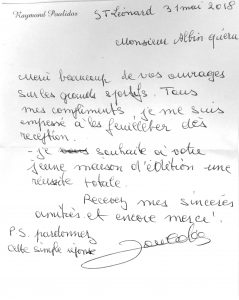 Raymond Poulidor
ST Léonard 31 mai 2018
Monsieur Albin Quéru
Merci beaucoup de vos ouvrages
sur les grands sportifs. Tous
mes compliments, je me suis
empressé à les feuilleter dès
réception.
- je souhaite à votre
jeune maison d'édition une
réussite totale.
Recevez mes sincères
amitiés et encore merci!
P.S. pardonnez
cette simple réponse
Poulidor